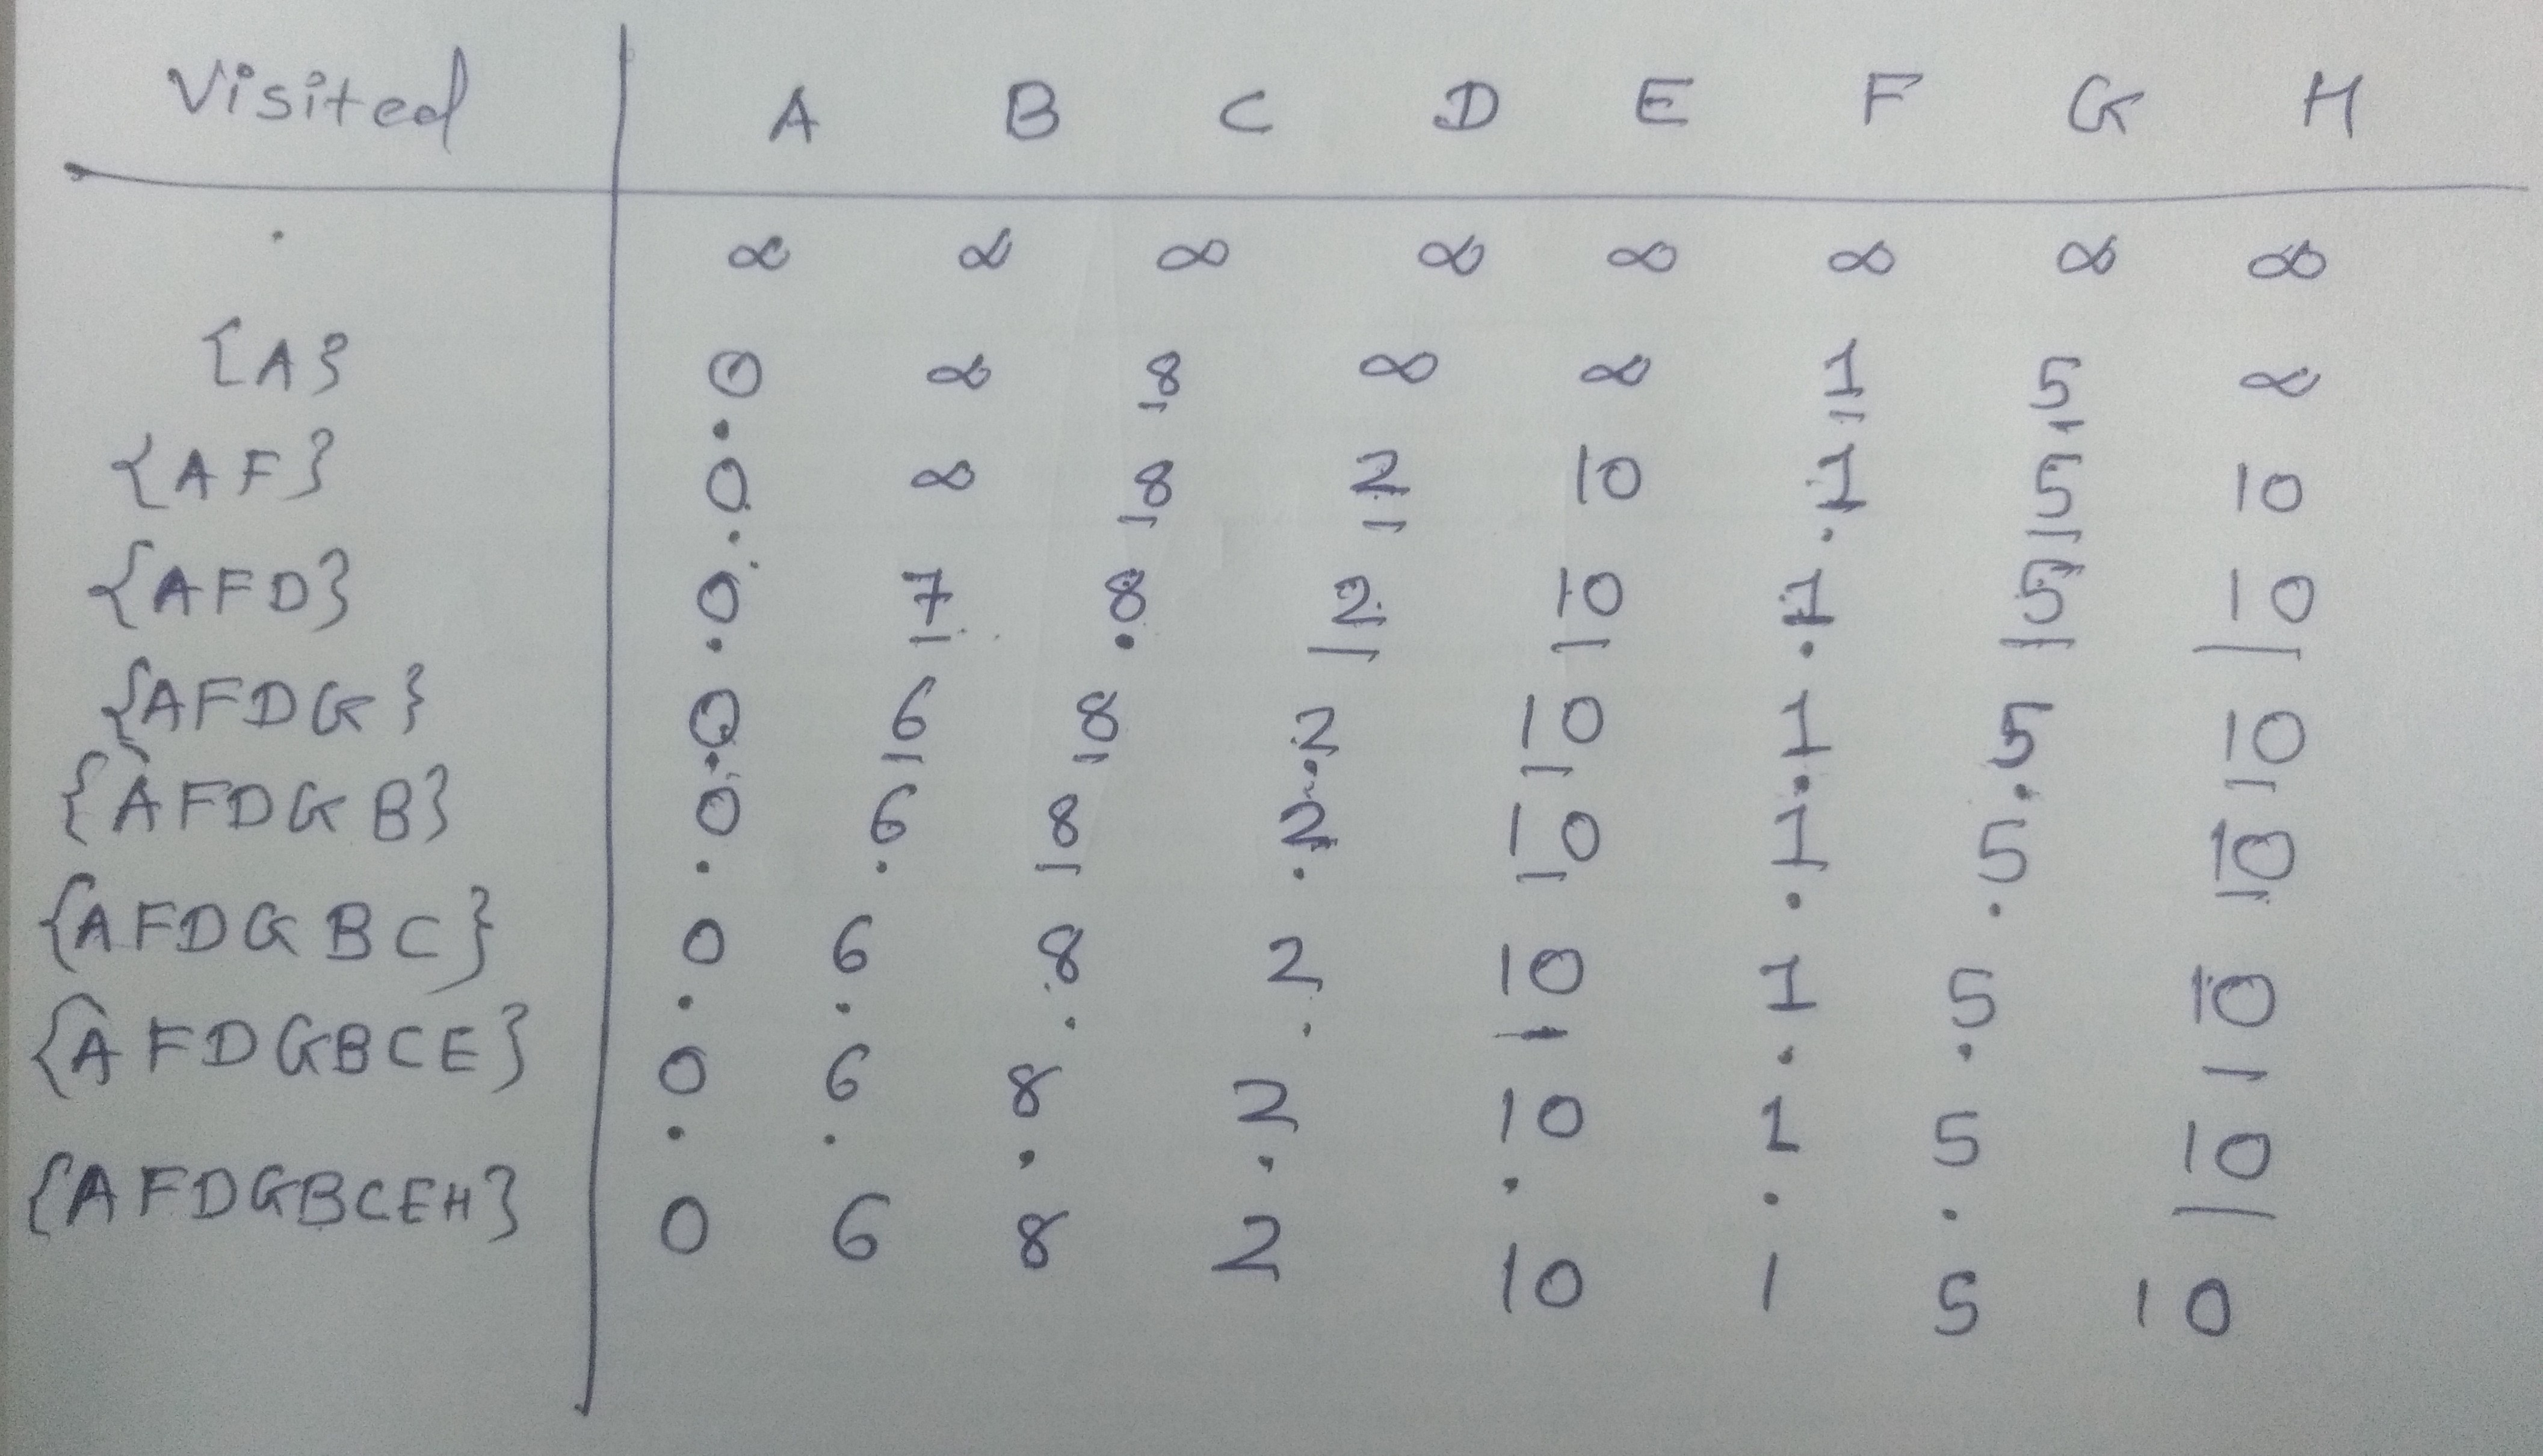 Visited A B C D E F G H
∞ ∞ ∞ ∞ ∞ ∞ ∞ ∞
{A} 0 ∞ 8 ∞ ∞ 1 5 ∞
{AF} 0 ∞ 8 2 10 1 5 10
{AFD} 0 7 8 2 10 1 5 10
{AFDG} 0 6 8 2 10 1 5 10
{AFDGB} 0 6 8 2 10 1 5 10
{AFDGBC} 0 6 8 2 10 1 5 10
{AFDGBCE} 0 6 8 2 10 1 5 10
{AFDGBCEH} 0 6 8 2 10 1 5 10